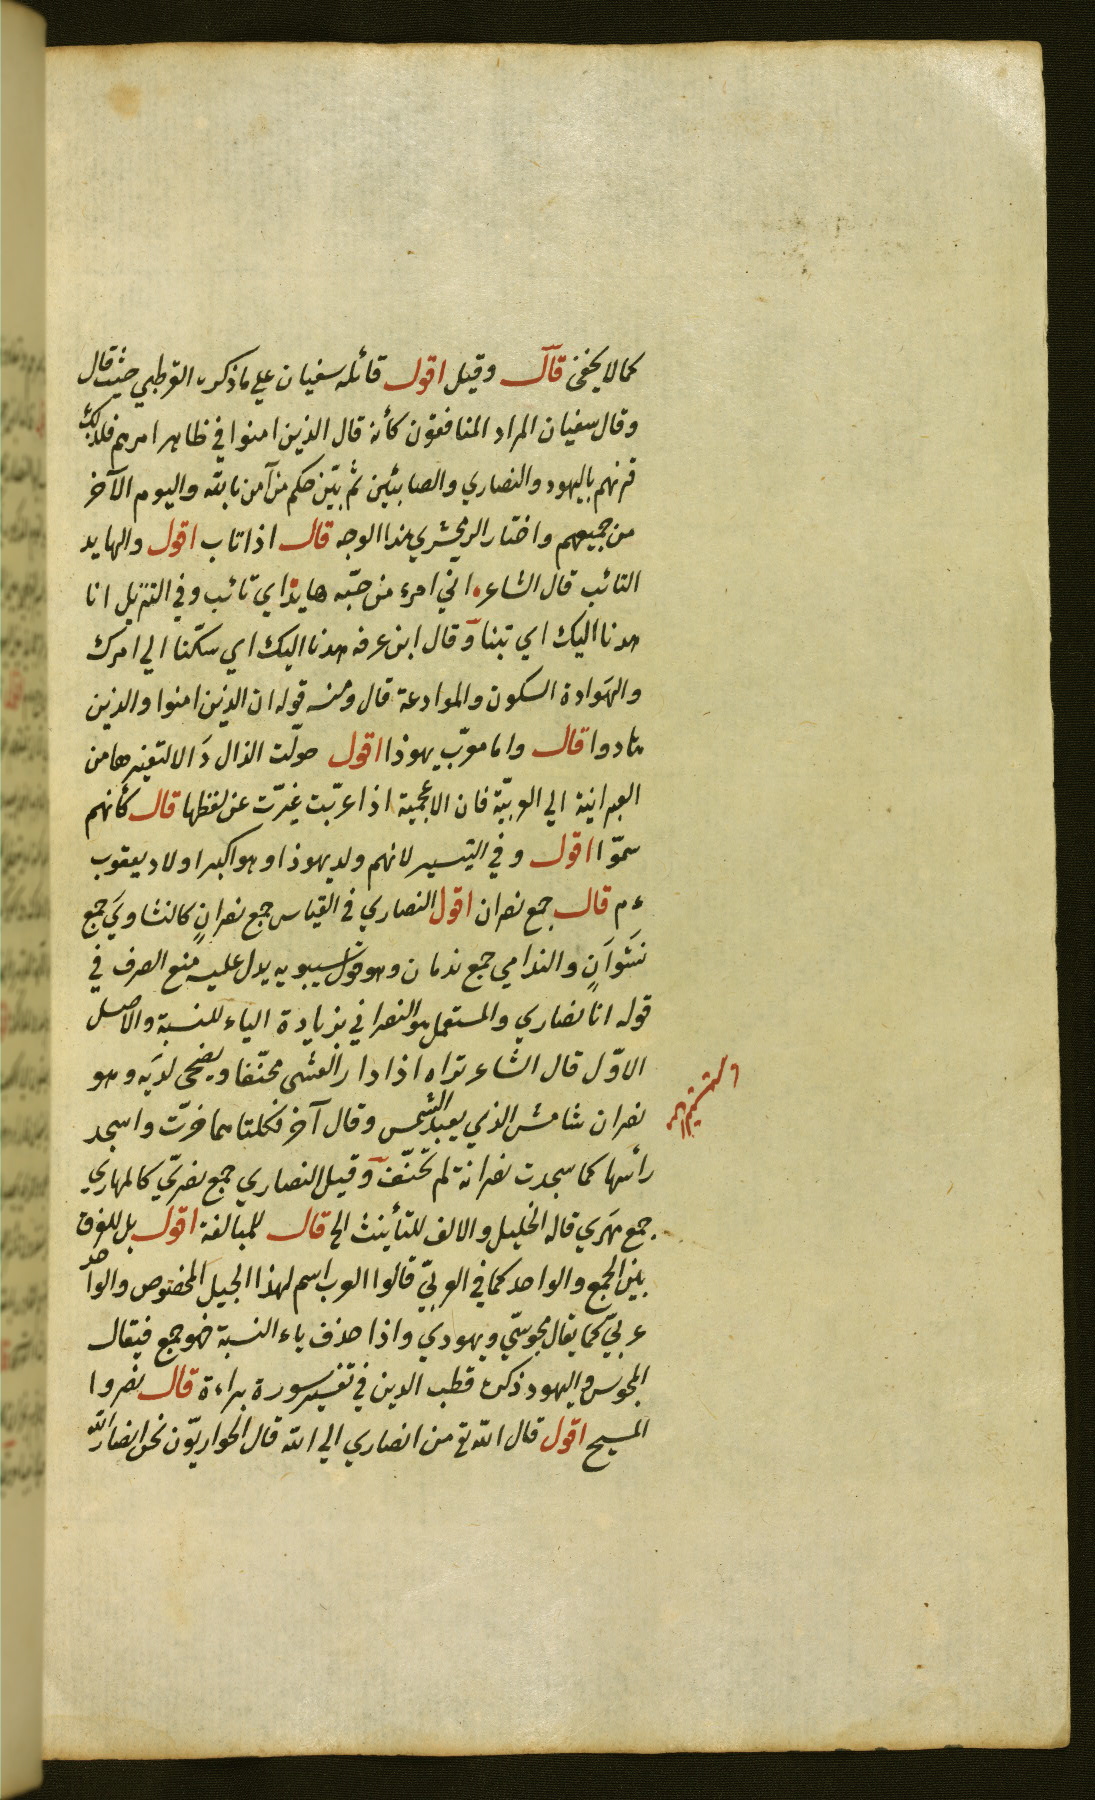 كما لا يخفى قال وقيل اقول قائله سفيان علي ما ذكره القرطبي حيث قال
وقال سفيان المراد المنافقون كأنه قال الذين امنوا في ظاهر امرهم فلذلك
قرنهم باليهود والنصاري والصابئين ثم بيّن حكم من آمن بالله واليوم الآخر
من جميعهم واختار الزمخشري هذا الوجه قال اذا تاب اقول والهايد
التائب قال الشاعر اني امرء من حبّه هايد اي تائب وفي التنزيل انا
هدنا اليك اي تبنا وقال ابن عرفه هدنا اليك اي سكّنا الي امرك
والهَوادة السكون والموادعة قال ومنه قوله ان الذين امنوا والذين
هادوا قال واما معرّب يهوذا اقول حوّلت الذال دَالا لتغيرها من
العبرانية الي العربيّة فان الاعجمية اذا عرّبت غيّرت عن لفظها قال كأنهم
سمّوا اقول وفي التيسير لانهم ولد يهوذا وهو اكبر اولاد يعقوب
ءم قال جمع نصران اقول النصاري في القياس جمع نصرانٍ كالنشاويَ جمع
نَشوَانٍ والندامي جمع ندمان وهو قول سيبويه يدل عليه منع الصرف في
قوله انا نصاري والمستعمل هو النصراني بزيادة الياء للنسبة والاصل
الاوّل قال الشاعر تراه اذا دار العشى محنّفا ويضحى لديَه وهو
نصران شامش الذي يعبد الشمس وقال آخر فكلتاهما خرّت واسجد
رأسها كما سجدت نصرانة لم تحنّف وقيل النصاري جمع نصريّ كالمهاري
جمع مهَري قاله الخليل والالف للتأينث الخ قال للمبالغة اقول بل للفرق
بين الجمع والواحد كما في العربيّ قالوا العرب اسم لهذا الجيل المخصوص والواحد
عربيّ كما يقال مجوسيّ ويهودي واذا حذف ياء النسبة فهو جمع فيقال
المجوس واليهود ذكره قطب الدين في تفسير سورة براءة قال نصروا
المسيح اقول قال الله تع من انصاري الي الله قال الحواريّون نحن انصار الله